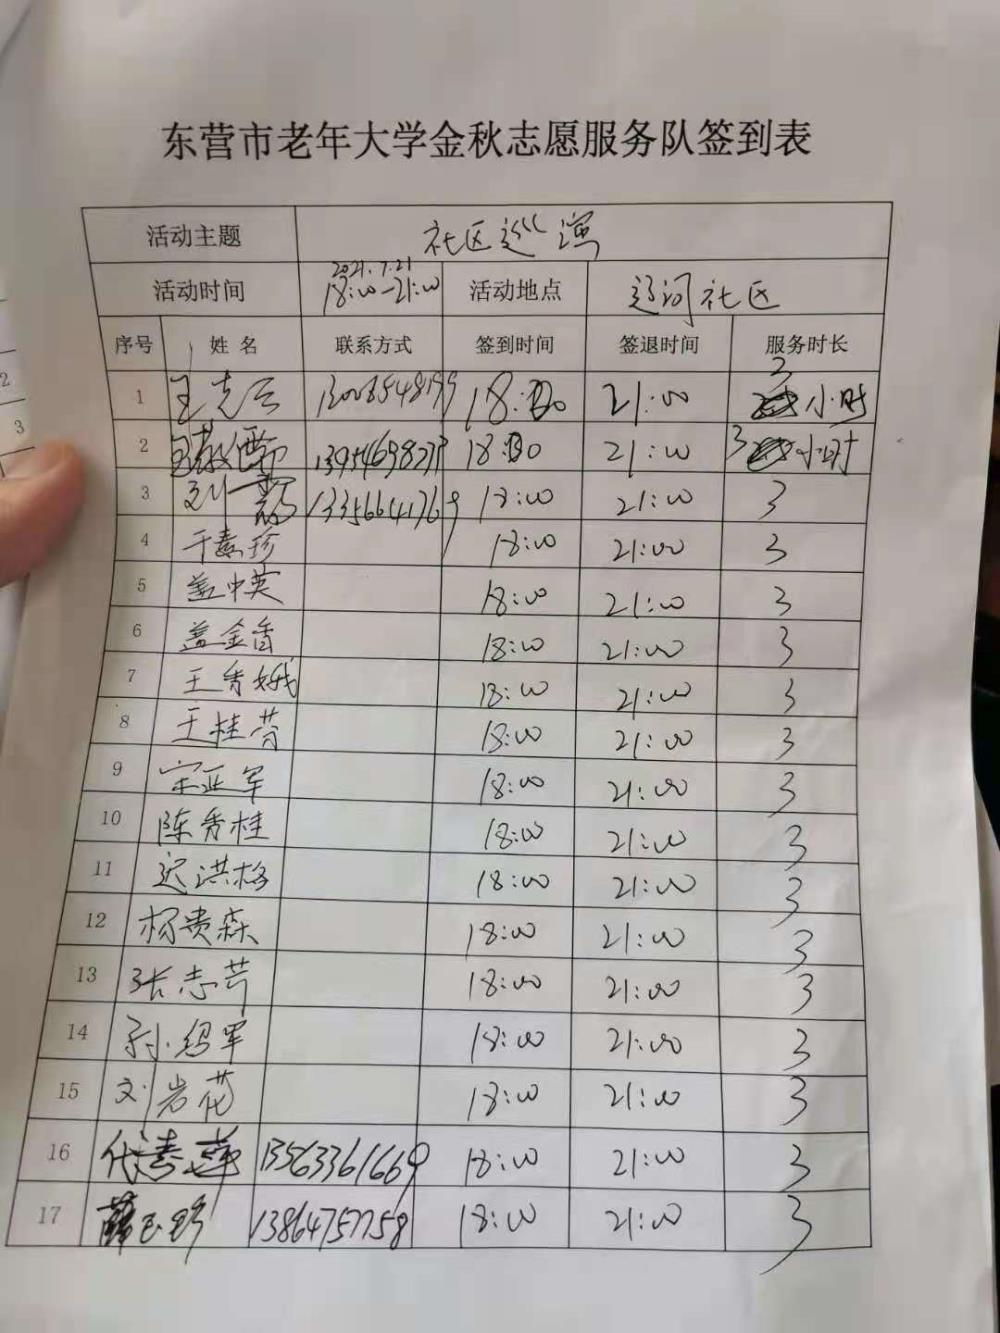 东营市老年大学金秋志愿服务队签到表
活动主题 社区巡演
活动时间 2021.7.21 18:00-21:00 活动地点 辽河社区
序号 姓名 联系方式 签到时间 签退时间 服务时长
1 18:00 21:00 3小时
2 18:00 21:00 3小时
3 刘 13356641769 18:00 21:00 3
4 于素珍 18:00 21:00 3
5 盖中英 18:00 21:00 3
6 盖金香 18:00 21:00 3
7 王秀娥 18:00 21:00 3
8 王桂芳 18:00 21:00 3
9 宋亚军 18:00 21:00 3
10 陈秀桂 18:00 21:00 3
11 迟洪梅 18:00 21:00 3
12 杨贵森 18:00 21:00 3
13 张志芹 18:00 21:00 3
14 孙绍军 18:00 21:00 3
15 刘岩花 18:00 21:00 3
16 代清莲 13563361669 18:00 21:00 3
17 薛玉珍 13864757758 18:00 21:00 3
2
3